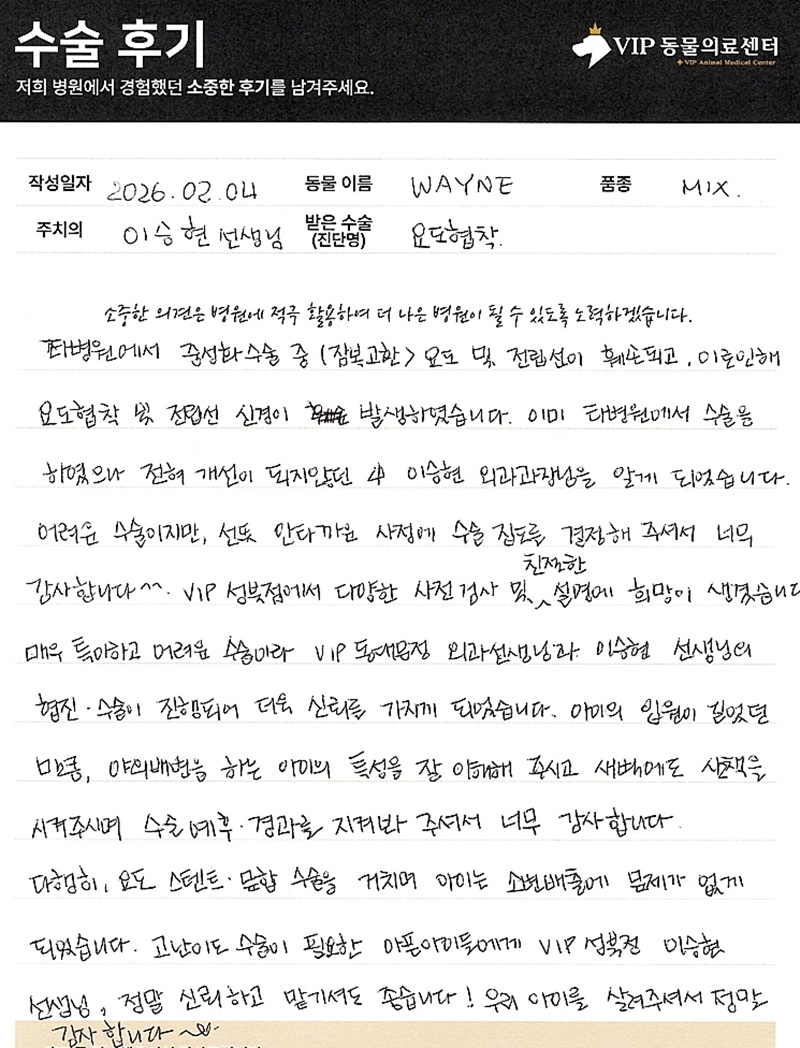 수술 후기
저희 병원에서 경험했던 소중한 후기를 남겨주세요.
VIP 동물의료센터
VIP Animal Medical Center
작성일자 2026.02.04 동물 이름 WAYNE 품종 MIX.
주치의 이승현 선생님 받은 수술 (진단명) 요도협착.
소중한 의견은 병원에 적극 활용하여 더 나은 병원이 될 수 있도록 노력하겠습니다.
타병원에서 중성화수술 중 (잠복고환) 요도 및 전립선이 훼손되고, 이로인해
요도협착 및 전립선 신경이 발생하였습니다. 이미 타병원에서 수술을
하였으나 전혀 개선이 되지않던 中 이승현 외과과장님을 알게 되었습니다.
어려운 수술이지만, 선뜻 안타까운 사정에 수술 집도를 결정해 주셔서 너무
감사합니다^^. VIP 성북점에서 다양한 사전검사 및 친절한 설명에 희망이 생겼습니다
매우 특이하고 어려운 수술이라 VIP 동대문점 외과선생님과 이승현 선생님의
협진·수술이 진행되어 더욱 신뢰를 가지게 되었습니다. 아이의 입원이 길었던
만큼, 야외배변을 하는 아이의 특성을 잘 이해해 주시고 새벽에도 산책을
시켜주시며 수술 예후·경과를 지켜봐 주셔서 너무 감사합니다.
다행히, 요도 스텐트·문합 수술을 거치며 아이는 소변배출에 문제가 없게
되었습니다. 고난이도 수술이 필요한 아픈아이들에게 VIP 성북점 이승현
선생님, 정말 신뢰하고 맡기셔도 좋습니다! 우리 아이를 살려주셔서 정말
감사합니다~